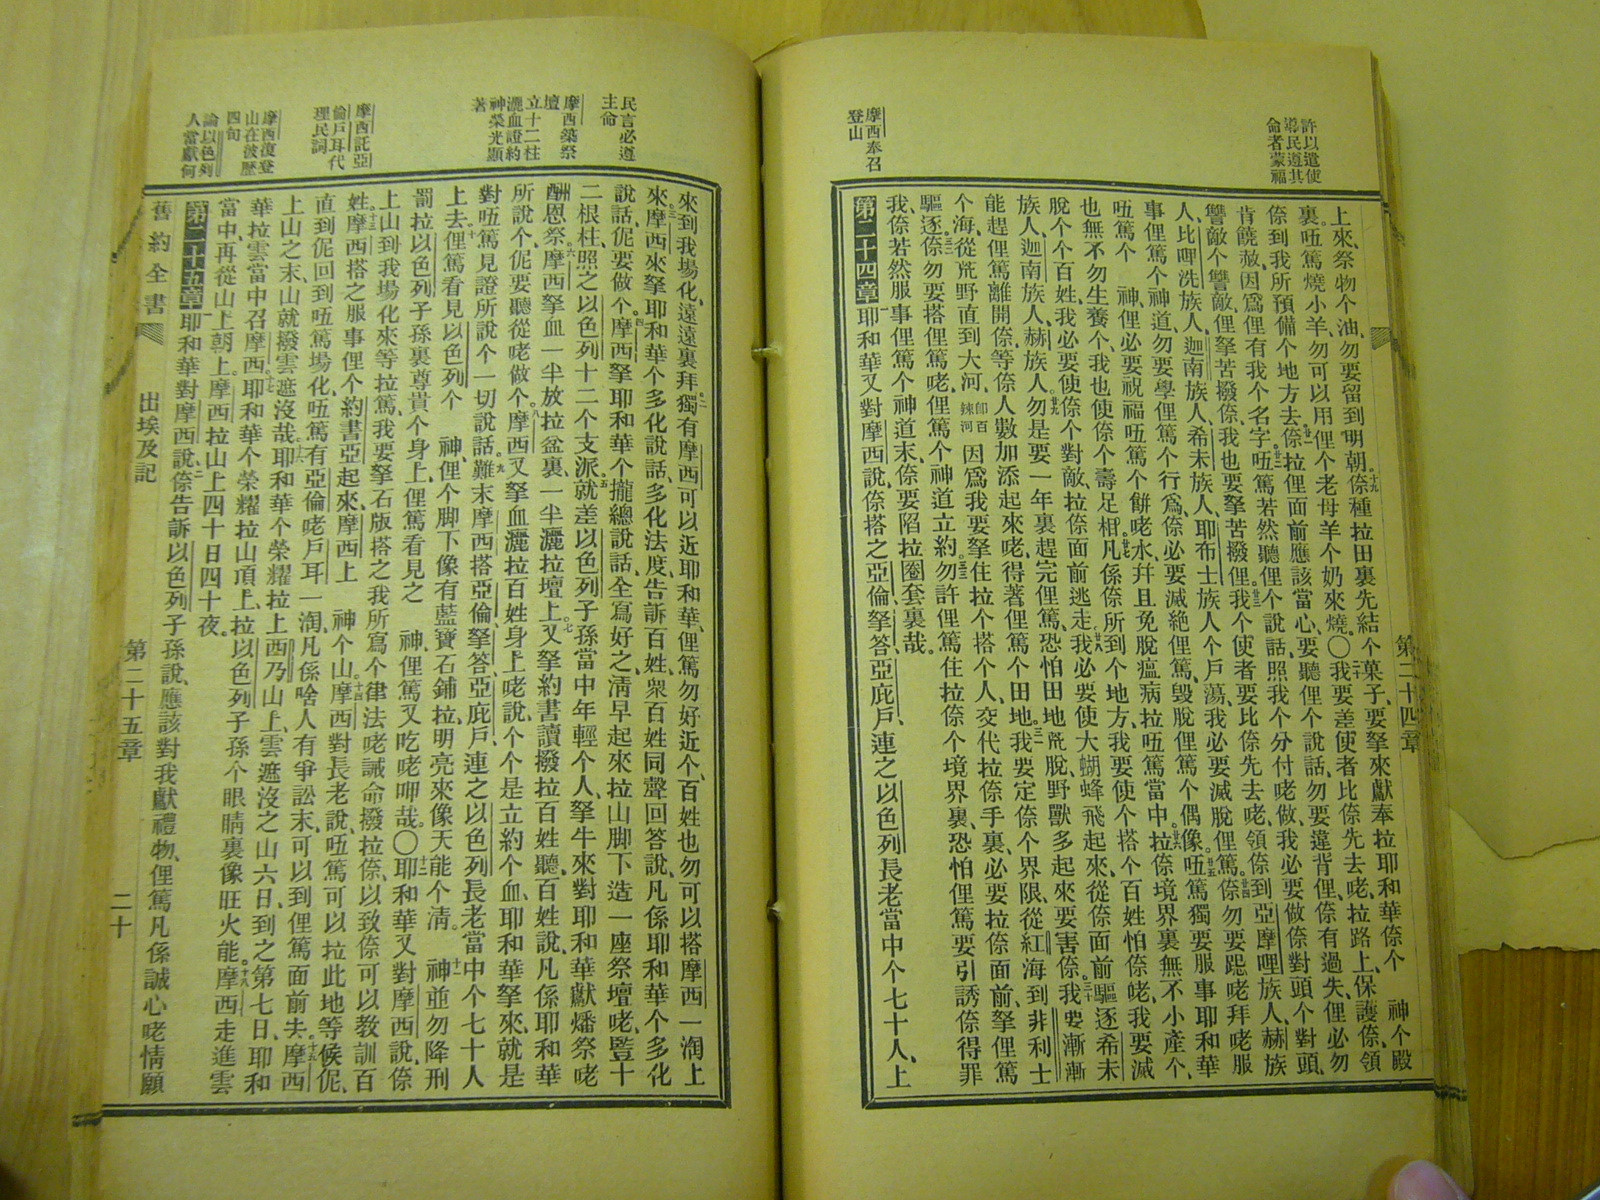 許以遣使
導民遵其
命者蒙福
摩西奉召
登山
第二十四章
上來、祭物个油、勿要留到明朝。十九倷種拉田裏先結个菓子、要拏來獻奉拉耶和華倷个 神个殿
裏。唔篤燒小羊、勿可以用俚个老母羊个奶來燒。〇二十我要差使者比倷先去咾、拉路上、保護倷、領
倷到我所預備个地方去、廿一倷拉俚面前應該當心、要聽俚个說話、勿要違背俚、倷有過失、俚必勿
肯饒赦、因爲俚有我个名字。廿二唔篤若然聽俚个說話、照我个分付咾做、我必要做倷對頭个對頭、
讐敵个讐敵、俚拏苦撥倷、我也要拏苦撥俚。廿三我个使者要比倷先去咾、領倷到亞摩哩族人、赫族
人、比哩洗族人、迦南族人、希未族人、耶布士族人个戶蕩、我必要滅脫俚篤。廿四倷勿要跽咾拜咾服
事俚篤个神道、勿要學俚篤个行爲、倷必要滅絶俚篤、毀脫俚篤个偶像。廿五唔篤獨要服事耶和華
唔篤个 神、俚必要祝福唔篤个餅咾水、幷且免脫瘟病拉唔篤當中。廿六拉倷境界裏無不小產个、
也無不勿生養个、我也使倷个壽足相。廿七凡係倷所到个地方、我要使个搭个百姓怕倷咾、我要滅
脫个个百姓、我必要使倷个對敵、拉倷面前逃走。廿八我必要使大蝴蜂飛起來、從倷面前驅逐希未
族人、迦南族人、赫族人。廿九勿是要一年裏趕完俚篤、恐怕田地荒脫、野獸多起來要害倷。三十我要漸漸
能趕俚篤離開倷、等倷人數加添起來咾、得著俚篤个田地。三一我要定倷个界限、從紅海到非利士
个海、從荒野直到大河、因爲我要拏住拉个搭个人、交代拉倷手裏、必要拉倷面前、拏俚篤
驅逐。三二倷勿要搭俚篤咾、俚篤个神道立約。三三勿許俚篤住拉倷个境界裏、恐怕俚篤要引誘倷得罪
我、倷若然服事俚篤个神道末、倷要陷拉圈套裏哉。
第二十四章 一耶和華又對摩西說、倷搭之亞倫、拏答、亞庇戶、連之以色列長老當中个七十人、上
民言必遵
主命
摩西築祭
壇
立十二柱
灑血證約
神榮光顯
著
摩西託亞
倫戶耳代
理民詞
摩西復登
山在彼歷
四旬
論以色列
人當獻何
來到我場化、遠遠裏拜、二獨有摩西可以近耶和華、俚篤勿好近个、百姓也勿可以搭摩西一淘上
來。三摩西來拏耶和華个多化說話、多化法度告訴百姓、衆百姓同聲回答說、凡係耶和華个多化
說話、伲要做个。四摩西拏耶和華个攏總說話、全寫好之、淸早起來拉山脚下造一座祭壇咾、豎十
二根柱、照之以色列十二个支派、五就差以色列子孫當中年輕个人、拏牛來對耶和華獻燔祭咾
酬恩祭、六摩西拏血一半放拉盆裏、一半灑拉壇上。七又拏約書讀撥拉百姓聽、百姓說、凡係耶和華
所說个、伲要聽從咾做个。八摩西又拏血灑拉百姓身上咾說、个个是立約个血、耶和華拏來、就是
對唔篤見證所說个一切說話。九難末摩西搭亞倫、拏答、亞庇戶、連之以色列長老當中个七十人
上去。十俚篤看見以色列个 神、俚个脚下像有藍寶石鋪拉、明亮來像天能个淸。 十一神並勿降刑
罰拉以色列子孫裏尊貴个身上、俚篤看見之 神、俚篤又吃咾呷哉。〇十二耶和華又對摩西說、倷
上山到我場化來等拉篤、我要拏石版搭之我所寫个律法咾誡命撥拉倷、以致倷可以敎訓百
姓。十三摩西搭之服事俚个約書亞起來、摩西上 神个山。十四摩西對長老說、唔篤可以拉此地等候伲、
直到伲回到唔篤場化、唔篤有亞倫咾戶耳一淘、凡係啥人有爭訟末、可以到俚篤面前去。十五摩西
上山之末、山就撥雲遮沒哉。十六耶和華个榮耀拉上西乃山上、雲遮沒之山六日、到之第七日、耶和
華拉雲當中召摩西。十七耶和華个榮耀拉山頂上、拉以色列子孫个眼睛裏像旺火能。十八摩西走進雲
當中再從山上朝上、摩西拉山上四十日四十夜。
第二十五章 一耶和華對摩西說、二倷告訴以色列子孫說、應該對我獻禮物、俚篤凡係誠心咾情願
舊約全書 出埃及記 第二十五章 二十